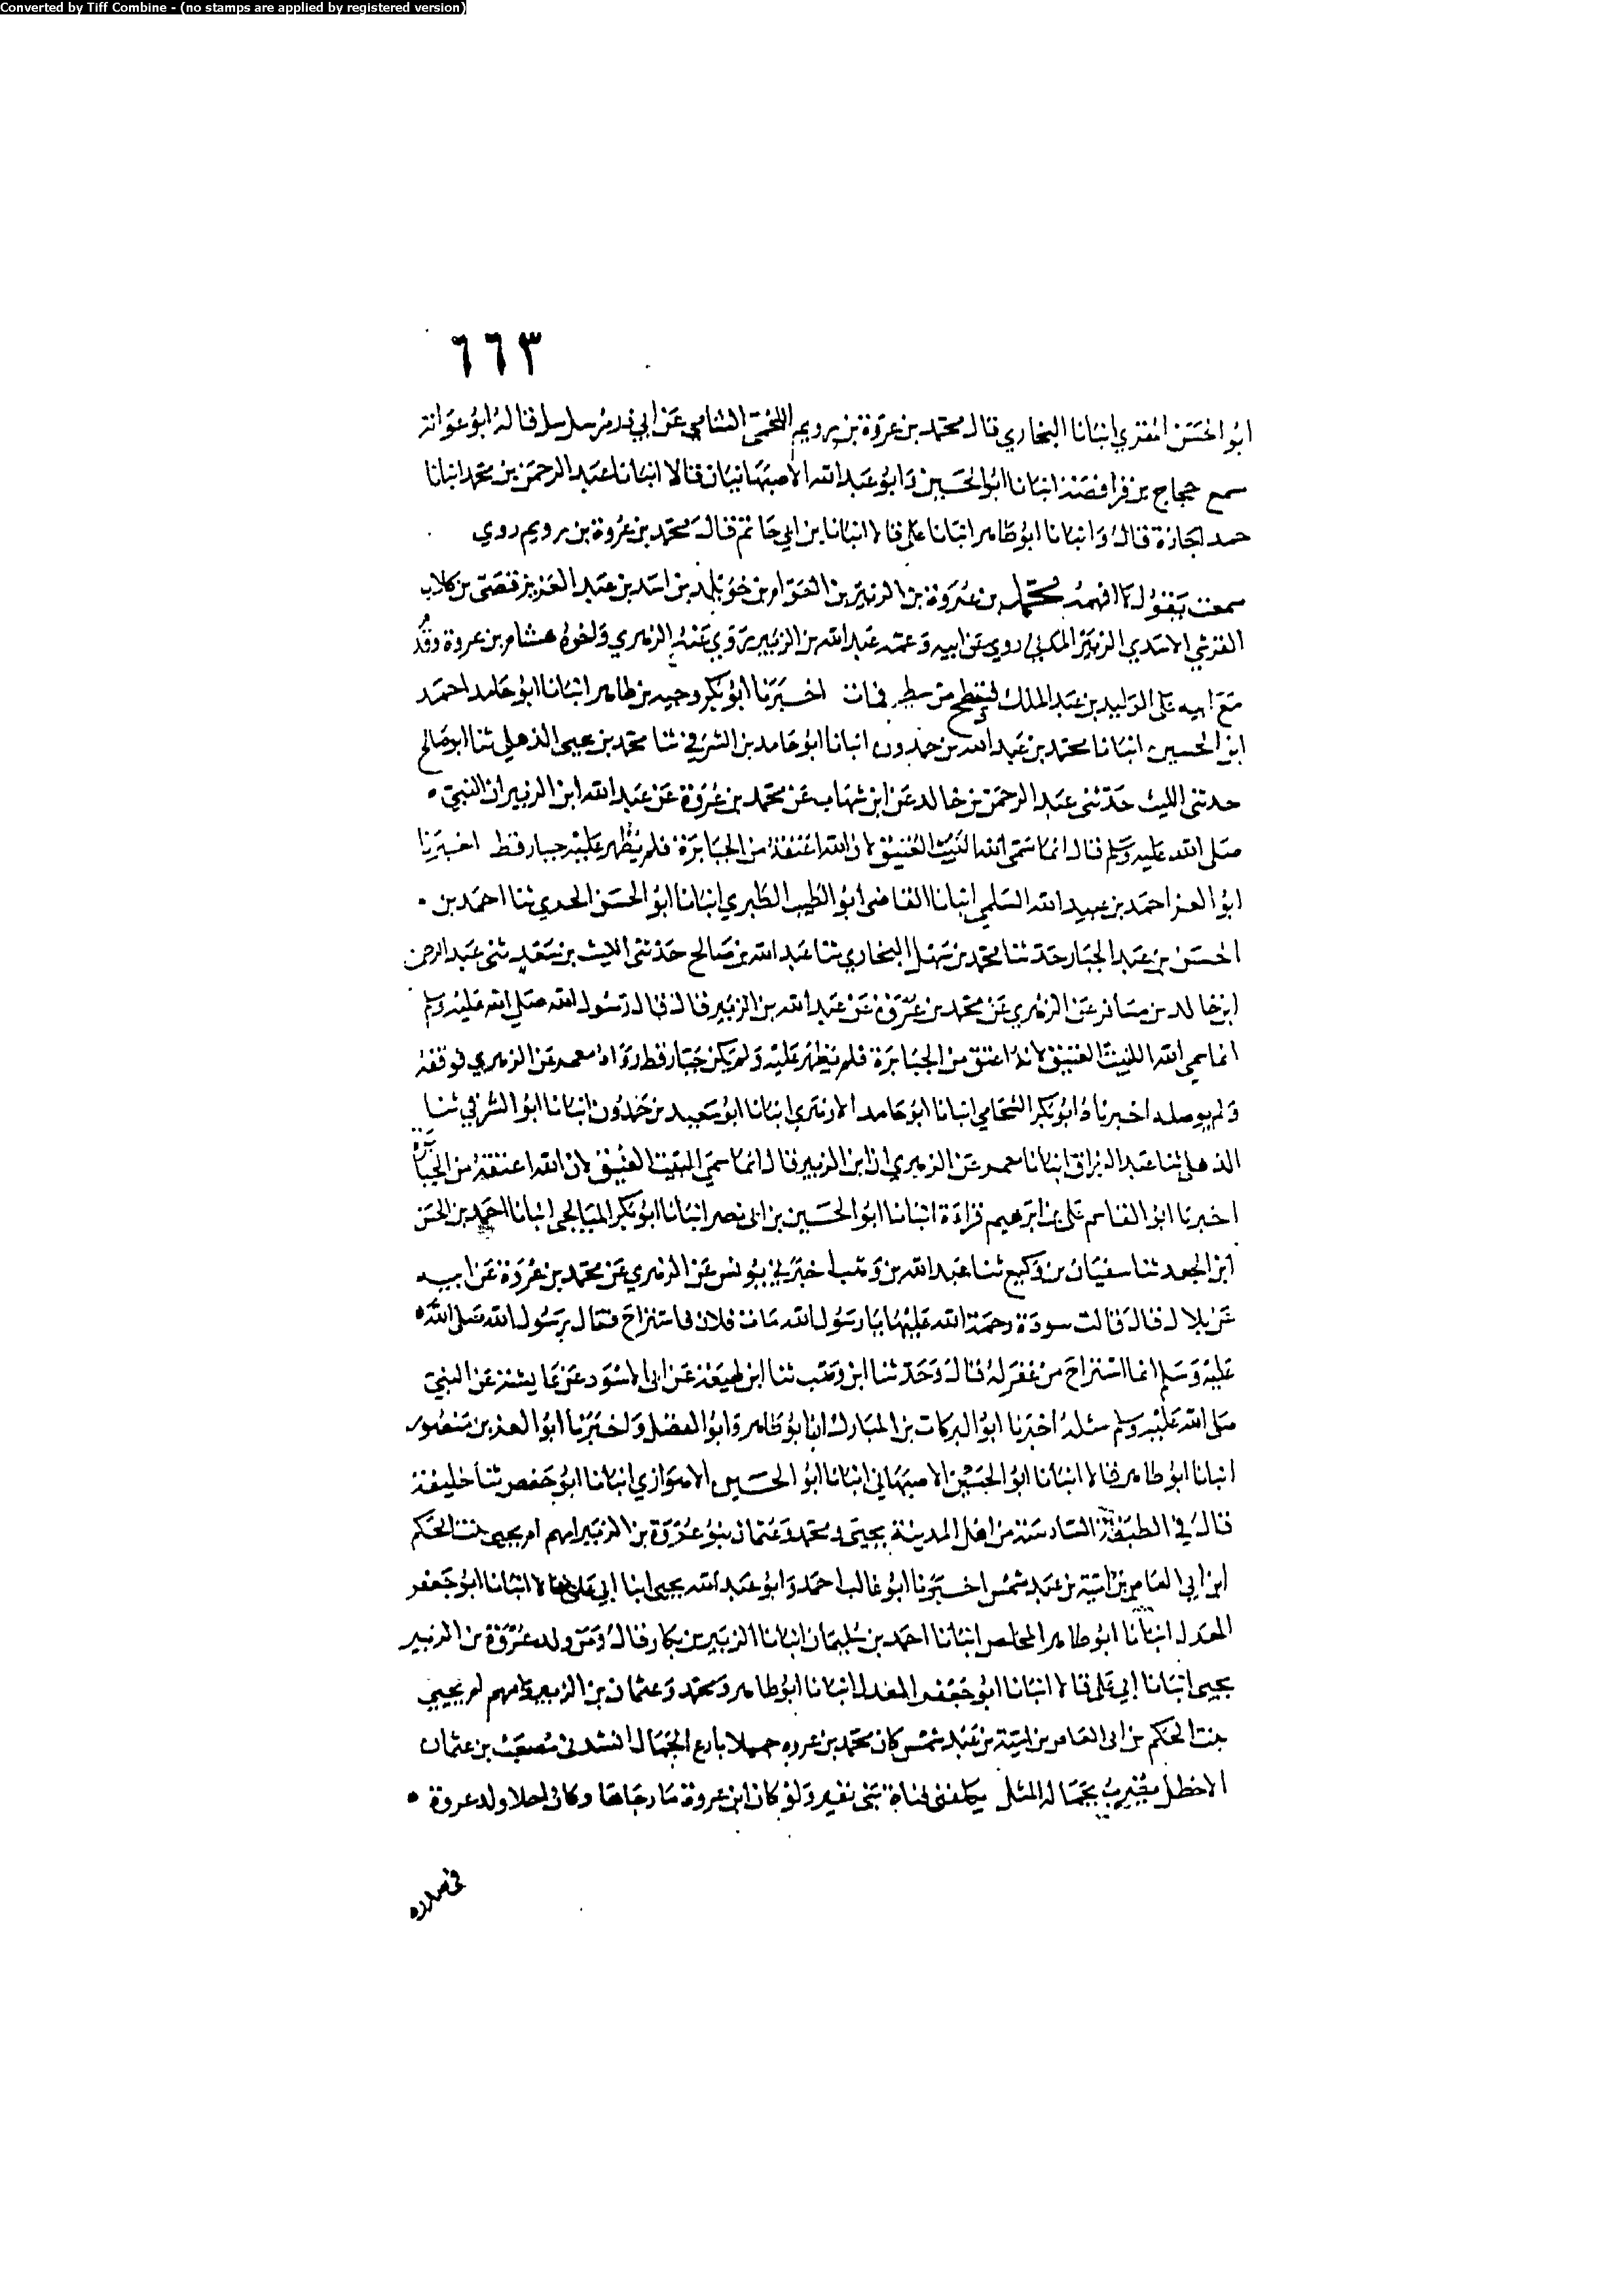 Converted by Tiff Combine - (no stamps are applied by registered version)
٦٦٣
ابو الحسن المقري انبانا البخاري قال محمد بن عروة بن رويم اللخمي الشامي عن ابي ذر مرسل قاله ابو عوانة
سمع حجاج بن فرافصة انبانا ابو الحسين وابو عبد الله الاصبهانيان قالا انبانا عبد الرحمن بن محمد انبانا
حمد اجازة قال وانبانا ابو طاهر انبانا علي قالا انبانا بن ابي حاتم قال محمد بن عروة بن رويم روي
سمعت يقول لا افهمه محمد بن عروة بن الزبير بن العوام بن خويلد بن اسد بن عبد العزيز قصي بن كلاب
القرشي الاسدي الزبيري روي عن ابيه وعمه عبد الله بن الزبير روي عنه الزهري واخوه هشام بن عروة وفد
مع ابيه على الوليد بن عبد الملك من سطح فمات اخبرنا ابو بكر وجيه بن طاهر انبانا ابو حامد احمد
ابن الحسين انبانا محمد بن عبد الله بن حمدون انبانا ابو حامد بن الشرقي ثنا محمد بن يحيى الذهلي ثنا ابو صالح
حدثني الليث حدثني عبد الرحمن بن خالد عن ابن شهاب عن محمد بن عروة عن عبد الله ابن الزبير ان النبي
صلى الله عليه وسلم قال انما سمى الله البيت العتيق لان الله اعتقه من الجبابرة فلم يظهر عليه جبار قط اخبرنا
ابو العز احمد بن عبيد الله السلمي انبانا القاضي ابو الطيب الطبري انبانا ابو الحسن الحربي ثنا احمد بن
الحسن بن عبد الجبار حدثنا محمد بن سهل البخاري ثنا عبد الله بن صالح حدثني الليث بن سعد ثني عبد الرحمن
ابن خالد بن مسافر عن الزهري عن محمد بن عروة عن عبد الله بن الزبير قال قال رسول الله صلى الله عليه وسلم
انما سمي الله البيت العتيق لانه اعتق من الجبابرة فلم يظهر عليه ولم يكن جبار قط رواه معمر عن الزهري فوقفه
ولم يوصله اخبرناه ابو بكر الشحامي انبانا ابو حامد الازهري انبانا ابو سعيد بن حمدون انبانا ابو الشرقي ثنا
الذهلي ثنا عبد الرزاق انبانا معمر عن الزهري ان ابن الزبير قال انما سمي البيت العتيق لان الله اعتقه من الجبابرة
اخبرنا ابو القاسم علي بن ابرهيم قراءة انبانا ابو الحسين بن ابي نصر انبانا ابو بكر الميانجي انبانا احمد بن الحسن
ابن الجعد ثنا سفيان بن وكيع ثنا عبد الله بن وهب اخبرني يونس عن الزهري عن محمد بن عروة عن ابيه
عن بلال قال قالت سودة رحمة الله عليها يا رسول الله مات فلان فاستراح فقال رسول الله صلى الله
عليه وسلم انما استراح من غفر له قال وحدثنا ابن وهب ثنا ابن لهيعة عن ابي الاسود عن عايشة عن النبي
صلى الله عليه وسلم مثله اخبرنا ابو البركات بن المبارك انا ابو طاهر وابو الفضل واخبرنا ابو العز بن منصور
انبانا ابو طاهر قالا انبانا ابو الحسين الاصبهاني انبانا ابو الحسين الاهوازي انبانا ابو حفص ثنا خليفة
قال في الطبقة السادسة من اهل المدينة يحيى ومحمد وعثمان بنو عروة بن الزبير امهم ام يحيى بنت الحكم
ابن ابي العاص بن امية بن عبد شمس اخبرنا ابو غالب احمد وابو عبد الله يحيى ابنا ابي علي قالا انبانا ابو جعفر
المعدل انبانا ابو طاهر المخلص انبانا احمد بن سليمان انبانا الزبير بن بكار قال ومن ولد عروة بن الزبير
يحيى انبانا ابي علي قالا انبانا ابو جعفر المعدل انبانا ابو طاهر ومحمد وعثمان بن الزبير وامهم ام يحيى
بنت الحكم بن ابي العاص بن امية بن عبد شمس كان محمد بن عروه جميلا بارع الجمال انشدني مصعب بن عثمان
الاخطل بجماله المثل يكلفني فتاة بني نفير ولو كان ابن عروة ما رجاها وكان احلا ولد عروة